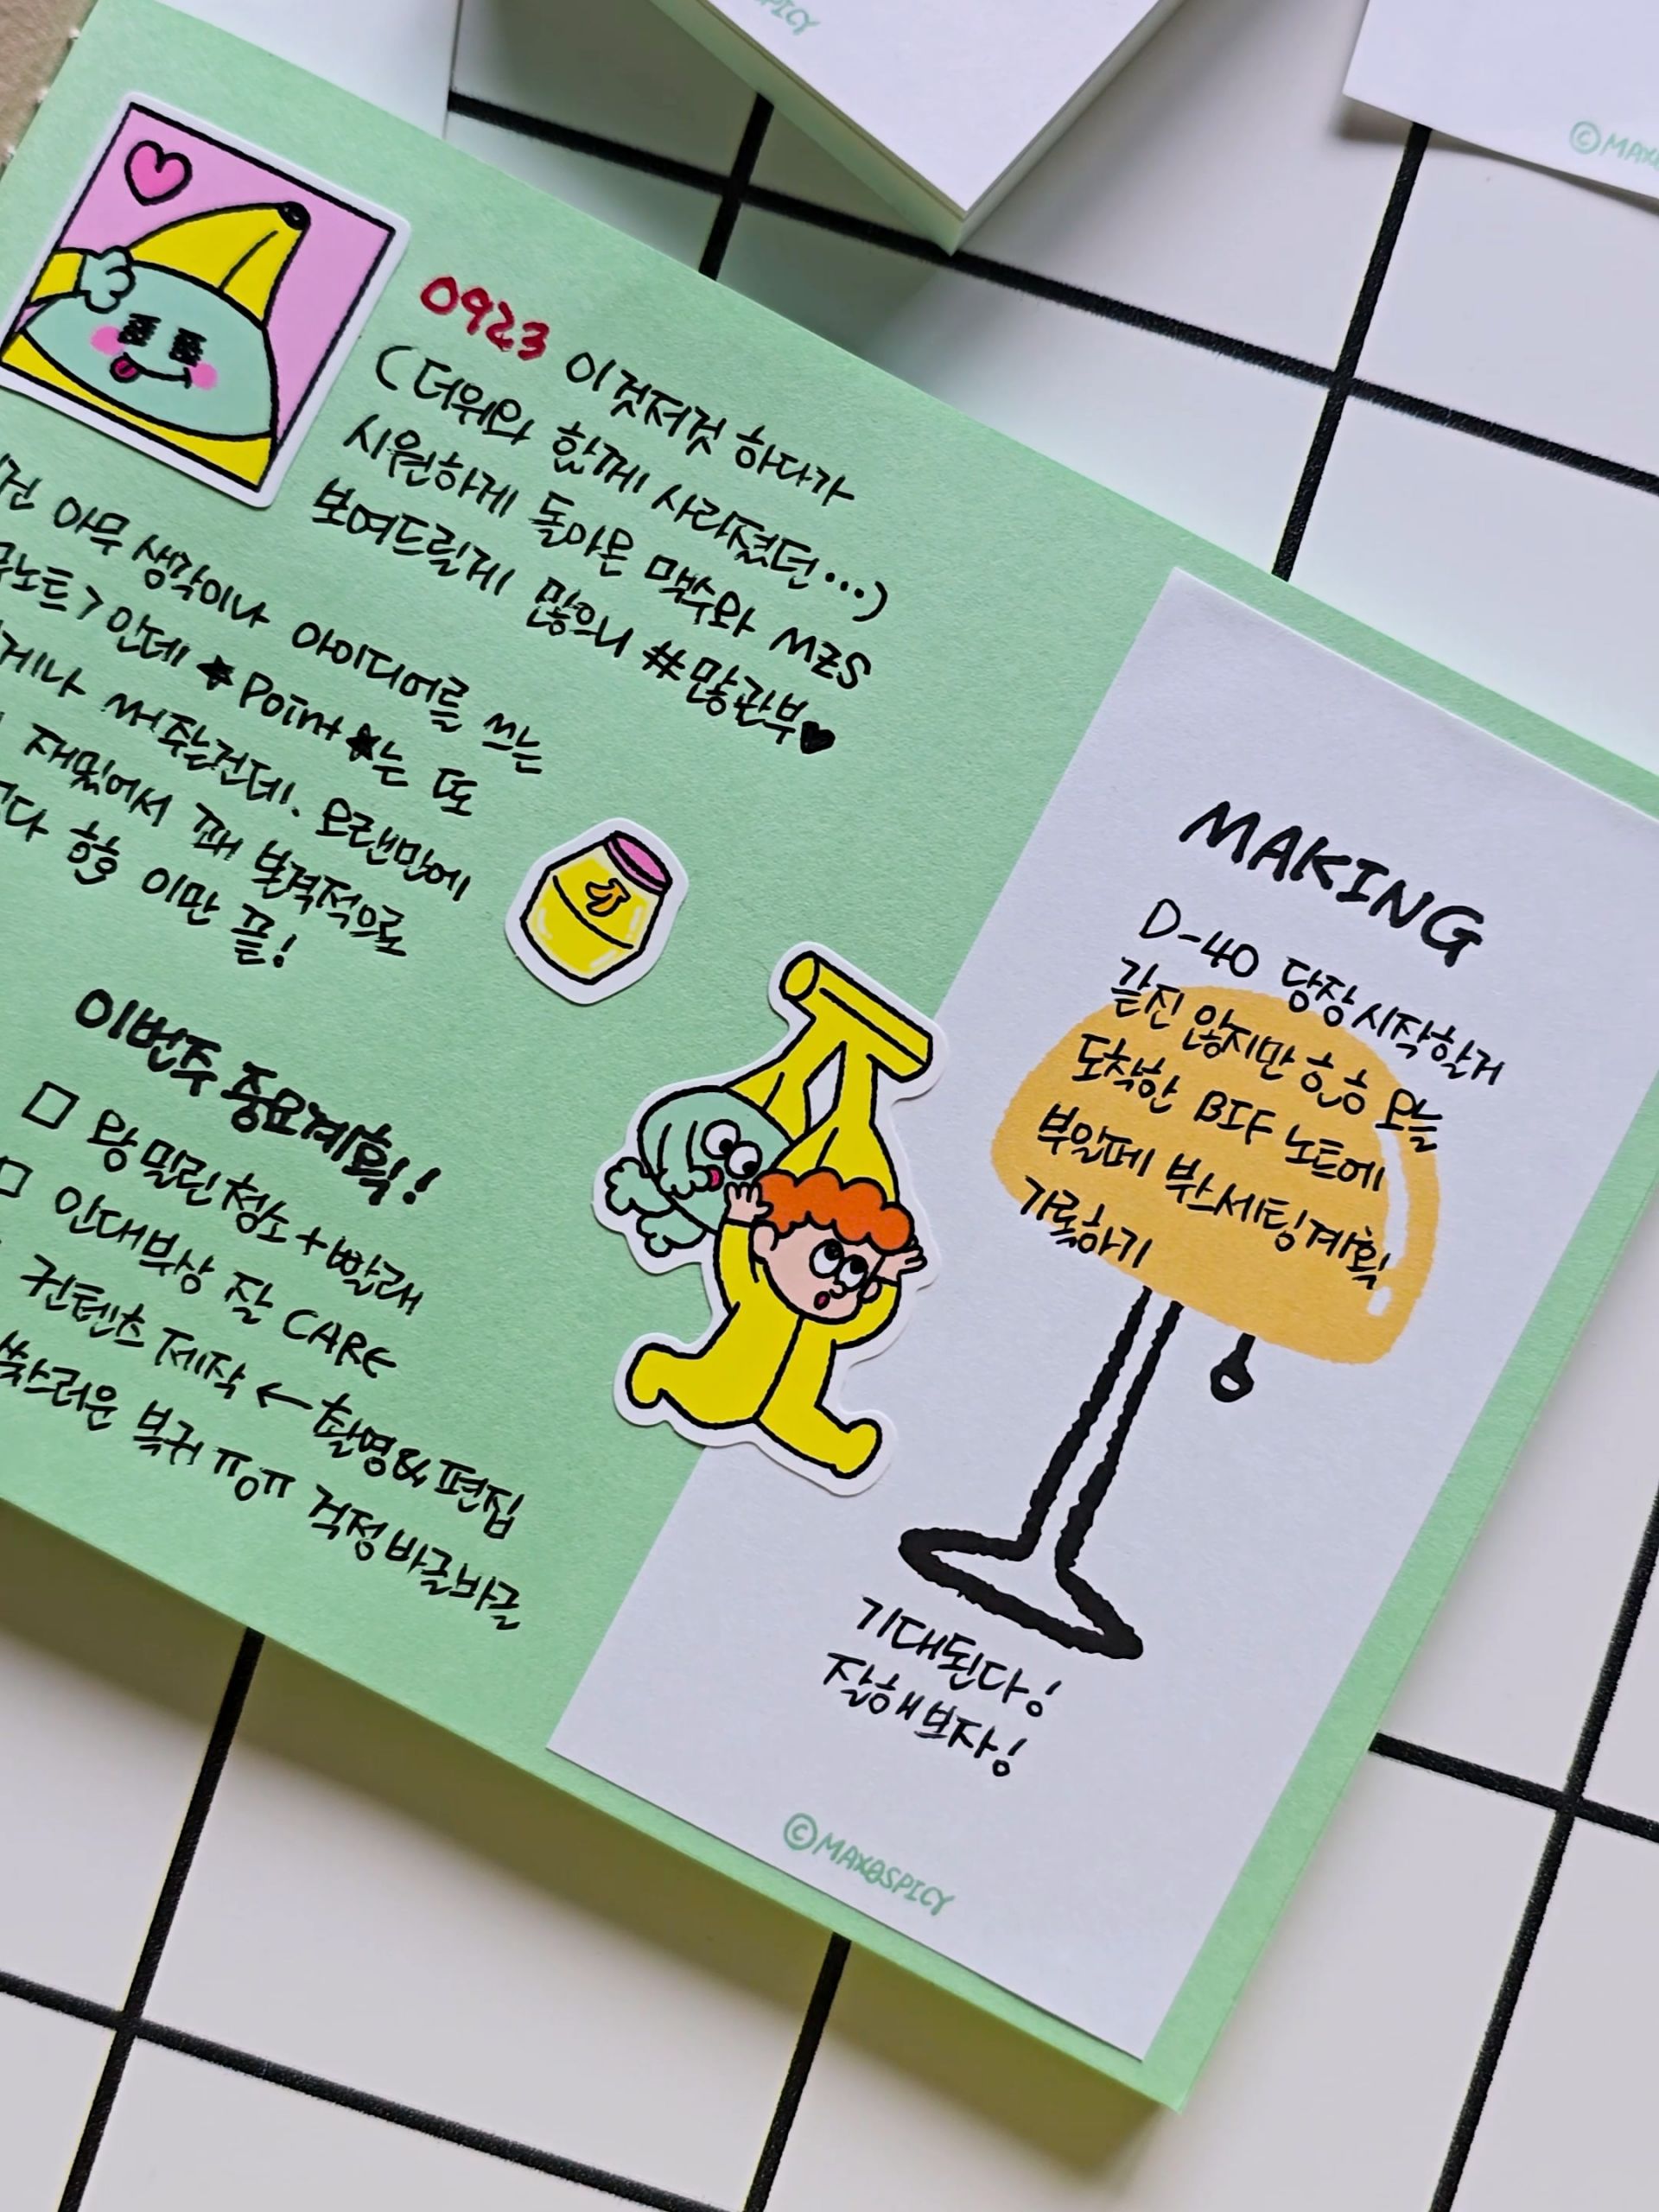 SPICY
©MAX
0923 이것저것 하다가
(더위와 함께 사라졌던...)
시원하게 돌아온 맥수와 MZS
보여드릴게 많으니 #많관부♥
건 아무 생각이나 아이디어를 쓰는
노트> 안데 ★Point★는 또
게나 써줄건데. 오랜만에
재밌어서 꽤 본격적으로
다 흐흐 이만 끝!
이번주 중요계획!
□ 왕 밀린 청소+빨래
□ 인대부상 잘 CARE
컨텐츠 제작 ← 촬영&편집
쑥스러운 복귀 ㅠㅇㅠ 걱정 바글바글
MAKING
D-40 당장 시작할거
같진 않지만 흐흐 오늘
도착한 BIF 노트에
부일페 부스세팅계획
기록하기
기대된다!
잘해보자!
©MAX&SPICY